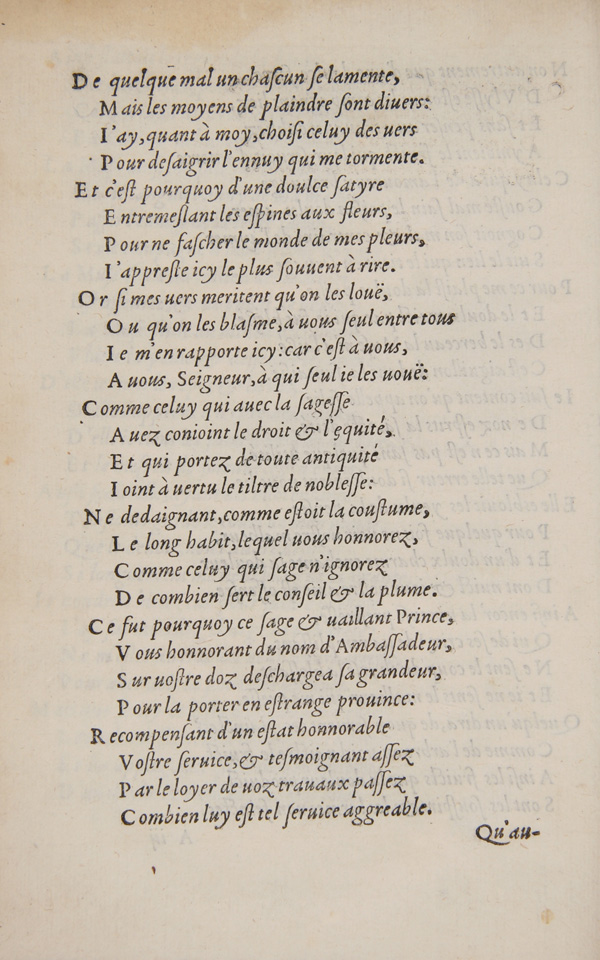 De quelque mal un chaſcun ſe lamente,
Mais les moyens de plaindre ſont diuers:
I'ay, quant à moy, choiſi celuy des uers
Pour deſaigrir l'ennuy qui me tormente.
Et c'eſt pourquoy d'une doulce ſatyre
Entremeſlant les eſpines aux fleurs,
Pour ne faſcher le monde de mes pleurs,
I'appreſte icy le plus ſouuent à rire.
Or ſi mes uers meritent qu'on les louë,
Ou qu'on les blaſme, à uous ſeul entre tous
Ie m'en rapporte icy: car c'eſt à uous,
A uous, Seigneur, à qui ſeul ie les uouë:
Comme celuy qui auec la ſageſſe
Auez conioint le droit & l'ęquité,
Et qui portez de toute antiquité
Ioint à uertu le tiltre de nobleſſe:
Ne dedaignant, comme eſtoit la couſtume,
Le long habit, lequel uous honnorez,
Comme celuy qui ſage n'ignorez
De combien ſert le conſeil & la plume.
Ce fut pourquoy ce ſage & uaillant Prince,
Vous honnorant du nom d'Ambaſſadeur,
Sur uoſtre doz deſchargea ſa grandeur,
Pour la porter en eſtrange prouince:
Recompenſant d'un eſtat honnorable
Voſtre ſeruice, & teſmoignant aſſez
Par le loyer de uoz trauaux paſſez
Combien luy eſt tel ſeruice aggreable.
Qu'au-